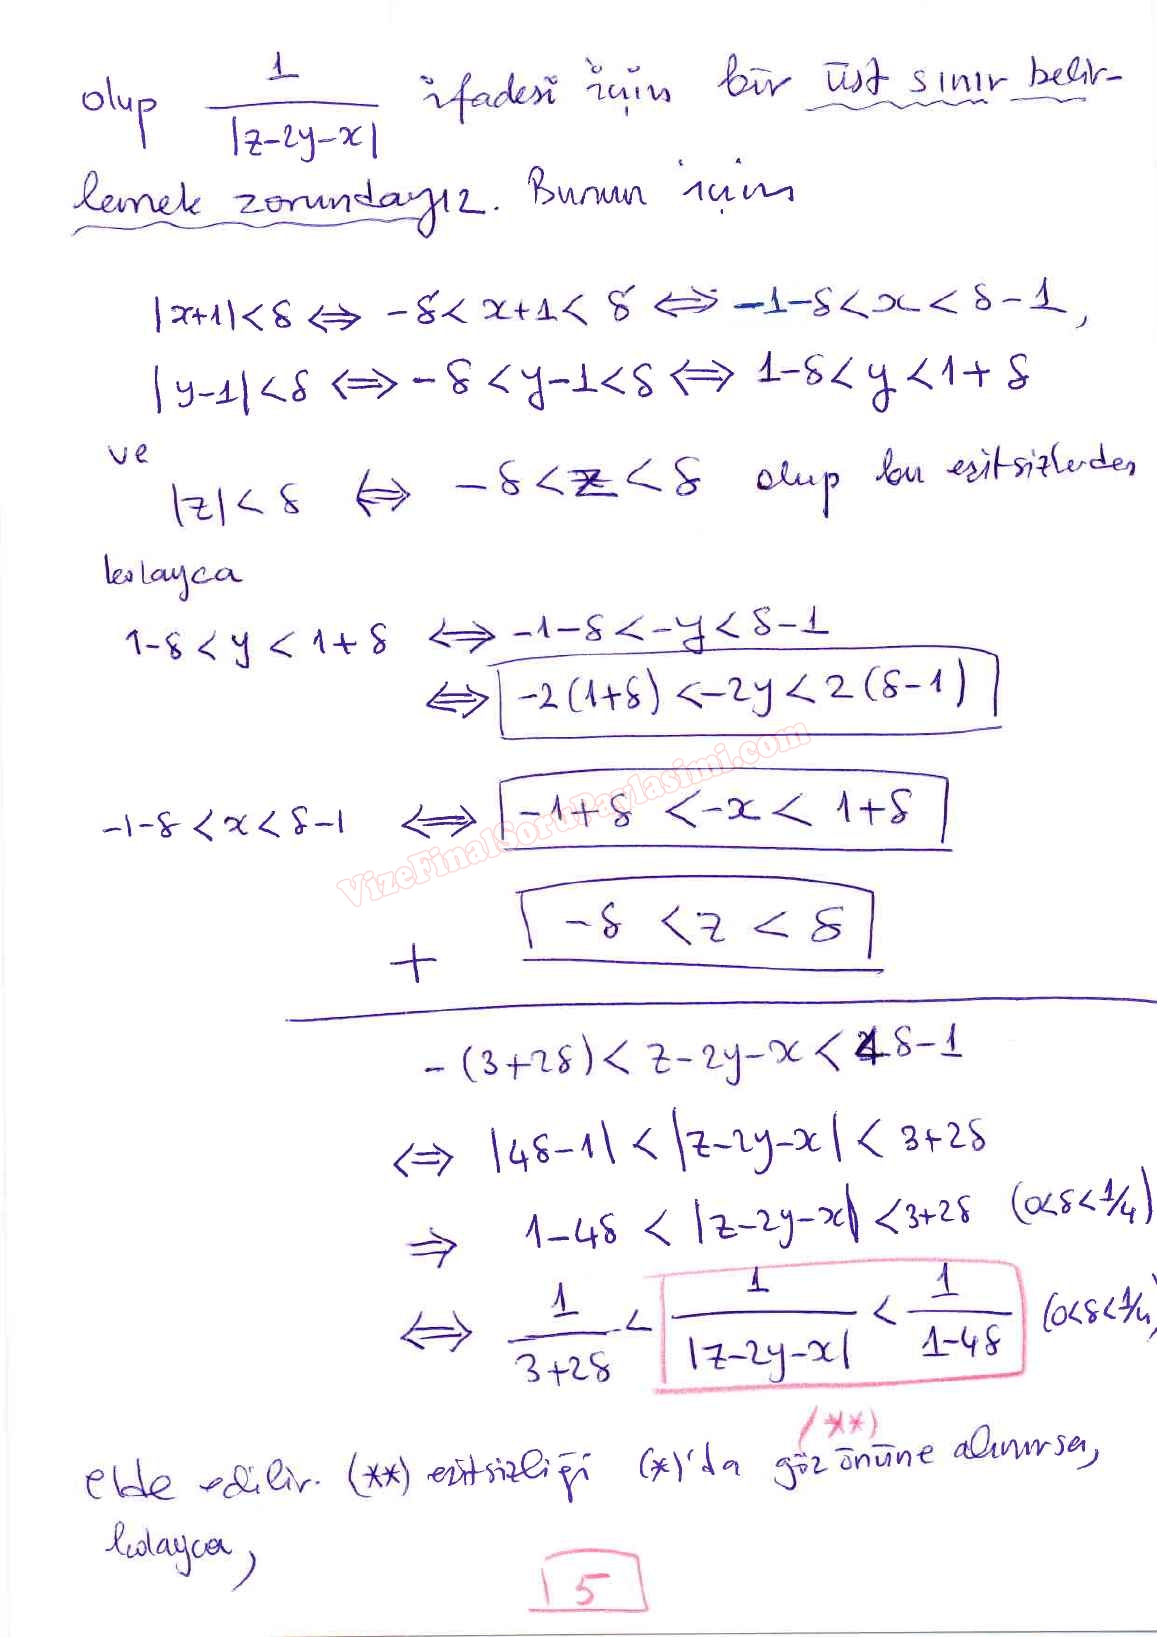 olup 1/|z-2y-x| ifadesi için bir üst sınır belir-
lemek zorundayız. Bunun için
|x+1|<δ ⇔ -δ<x+1<δ ⇔ -1-δ<x<δ-1,
|y-1|<δ ⇔ -δ<y-1<δ ⇔ 1-δ<y<1+δ
ve
|z|<δ ⇔ -δ<z<δ olup bu eşitsizlerden
kolayca
1-δ<y<1+δ ⇔ -1-δ<-y<δ-1
⇔ -2(1+δ)<-2y<2(δ-1)
-1-δ<x<δ-1 ⇔ -1+δ<-x<1+δ
VizeFinalSoruPaylasimi.com
-δ<z<δ
+
-(3+2δ)<z-2y-x<4δ-1
⇔ |4δ-1|<|z-2y-x|<3+2δ
⇒ 1-4δ<|z-2y-x|<3+2δ (0<δ<1/4)
⇔ 1/(3+2δ) < 1/|z-2y-x| < 1/(1-4δ) (0<δ<1/4)
(**)
elde edilir. (**) eşitsizliği (*)'da göz önüne alınırsa,
kolayca,
5